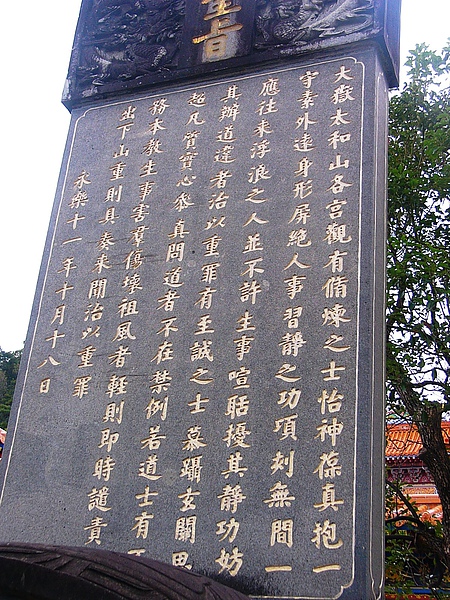 聖旨
大嶽太和山各宮觀有脩煉之士怡神葆真抱一
守素外遠身形屏絕人事習靜之功頃刻無間一
應往來浮浪之人並不許生事喧聒擾其靜功妨
其辦道違者治以重罪有至誠之士慕躡玄關思
超凡質實心參真問道者不在禁例若道士有不
務本教生事害羣傷壞祖風者輕則即時譴責
出下山重則具奏來聞治以重罪
永樂十一年十月十八日